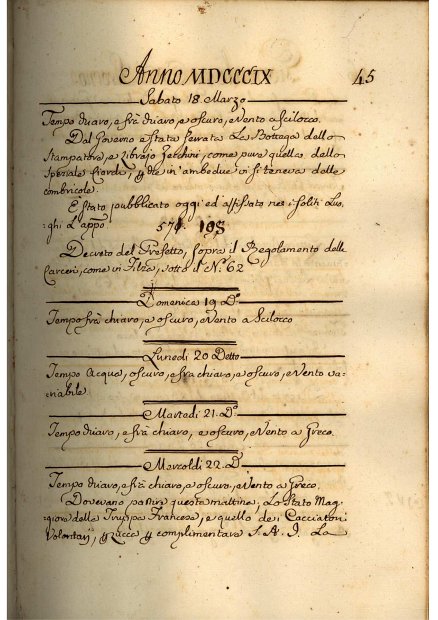 Anno MDCCCIX 45
Sabato 18 Marzo
Tempo chiaro, e frà chiaro, e oscuro, e Vento a Scilocco.
Dal Governo è stata serrata La Bottega dello
Stampatore, e Librajo Zerchini, come pure quella dello
Speziale, in ambedue vi si teneva delle
combricole.
È stato pubblicato oggi ed affissato nei soliti Luo,
ghi L'app.º
574. 198
Decreto del Prefetto, sopra il Regolamento delle
Carceri, come in Filza, sotto il N.º 62
Domenica 19 D.º
Tempo frà chiaro, e oscuro, e Vento a Scilocco
Lunedi 20 Detto
Tempo Acqua, oscuro, e frà chiaro, e oscuro, e Vento va,
riabile
Martedi 21. D.º
Tempo chiaro, e frà chiaro, e oscuro, e Vento a Greco.
Mercoldi 22. D.º
Tempo chiaro, e frà chiaro, e oscuro, e Vento a Greco.
Dovevano partire questa mattina, Lo Stato Mag,
giore della Truppa Francese, e quello dei Cacciatori
Volontarj, complimentare S. A. I. La